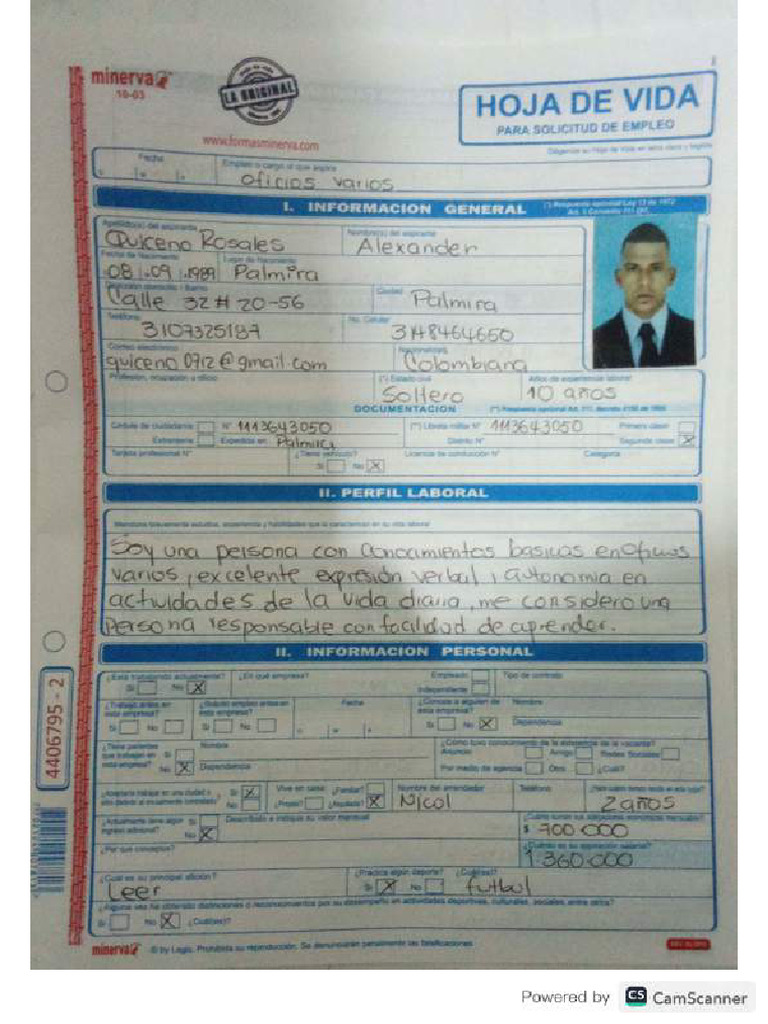 minerva
10-03
LA ORIGINAL
www.formasminerva.com
HOJA DE VIDA
PARA SOLICITUD DE EMPLEO
Fecha
Empleo o cargo al que aspira
oficios varios
I. INFORMACION GENERAL
Apellido(s) del aspirante
Nombre(s) del aspirante
Quiceno Rosales
Alexander
Fecha de Nacimiento
Lugar de Nacimiento
08 09 1989 Palmira
Dirección domicilio / Barrio
Ciudad
Calle 32 # 20-56
Palmira
Teléfono
No. Celular
3148464650
Correo electrónico
Nacionalidad
quiceno0912@gmail.com
Colombiana
Profesión, ocupación u oficio
(*) Estado civil
Años de experiencia laboral
Soltero
10 años
DOCUMENTACION
Cédula de ciudadanía
N° 1113643050
(*) Libreta militar N° 1113643050
Primera clase
Extranjería
Expedida en Palmira
Distrito N°
Segunda clase X
Tarjeta profesional N°
¿Tiene vehículo?
Licencia de conducción N°
Categoría
Si No X
II. PERFIL LABORAL
Mencione brevemente estudios, experiencia y habilidades que lo caracterizan en su vida laboral
Soy una persona con conocimientos basicos en oficios
varios, excelente expresión verbal, autonomia en
actividades de la vida diaria, me considero una
persona responsable con facilidad de aprender.
II. INFORMACION PERSONAL
¿Está trabajando actualmente?
¿En qué empresa?
Empleado
Tipo de contrato
Si No X
Independiente
¿Trabajó antes en esta empresa?
¿Solicitó empleo antes en esta empresa?
Fecha
¿Conoce a alguien de esta empresa?
Nombre
Si No
Si No
Si No X
Dependencia
¿Tiene parientes que trabajen en esta empresa?
Nombre
Si
No X
Dependencia
Anuncio
Amigo
Redes Sociales
Por medio de agencia
Otro
¿Cuál?
Si X
No
Vive en casa:
¿Familiar?
¿Propia?
¿Alquilada? X
Nombre del arrendador
Nicol
Teléfono
2 años
No X
$ 700.000
¿Por qué conceptos?
¿Cuál es su aspiración salarial?
1.360.000
¿Cuál es su principal afición?
Leer
¿Practica algún deporte?
Si X No
¿Cuál(es)?
futbol
¿Alguna vez ha obtenido distinciones o reconocimientos por su desempeño en actividades deportivas, culturales, sociales, entre otros?
Si No X ¿Cuál(es)?
4406795 - 2
minerva
© by Legis. Prohibida su reproducción. Se denunciarán penalmente las falsificaciones
Powered by CS CamScanner